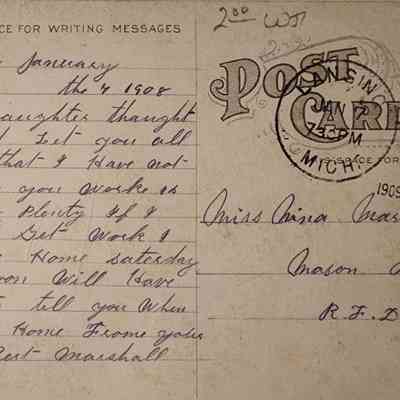 CE FOR WRITING MESSAGES
January
the 7 1908
aughter thought
Let you all
that I Have not
you Worke is
Plenty If I
Get Work I
Home saterday
oon Will Have
tell you When
Home Frome your
ert Marshall
2.00
POST
CARD
LANSIN
JAN 7
7 30 PM
MICH.
SPACE FOR
1909
Miss Nina Mar
Mason
R.F.D